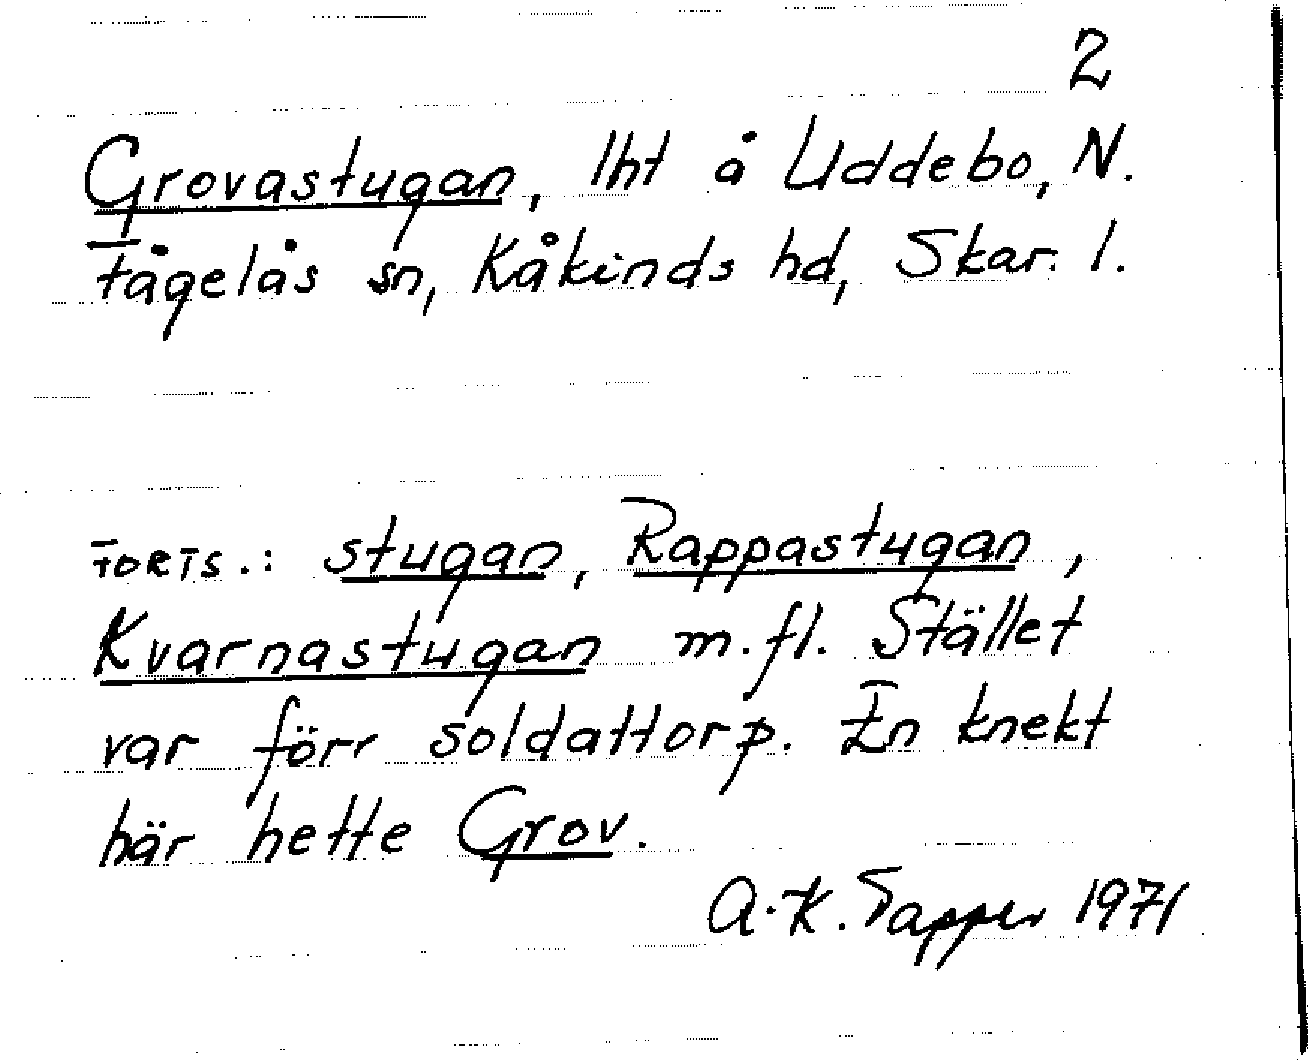 2
Grovastugan, lht å Uddebo, N.
Fågelås sn, Kåkinds hd, Skar. l.
FORTS.: stugan, Rappastugan,
Kvarnastugan m.fl. Stället
var förr soldattorp. En knekt
här hette Grov.
A.K. Tapper 1971